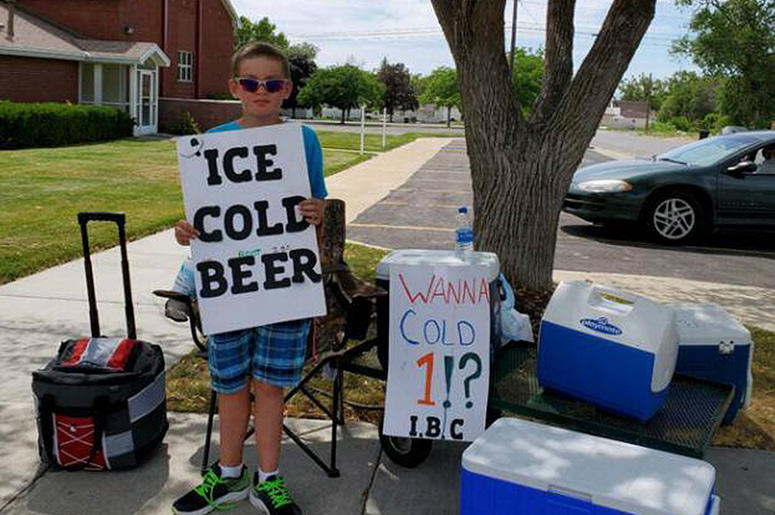 ICE
COLD
ROOT
BEER
WANNA
COLD
1!?
I.B.C
playmate